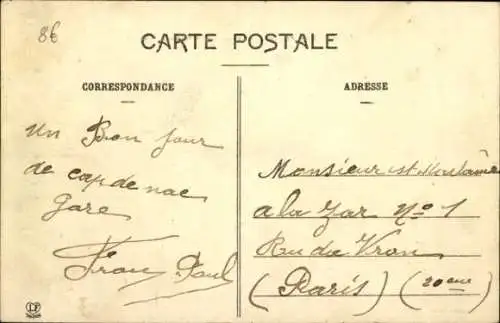 86
CARTE POSTALE
CORRESPONDANCE
ADRESSE
un Bon jour
de capdenac
gare
Paul
Monsieur et Madame
a la Gar No 1
Rue du Vron
(Paris) (20eme)